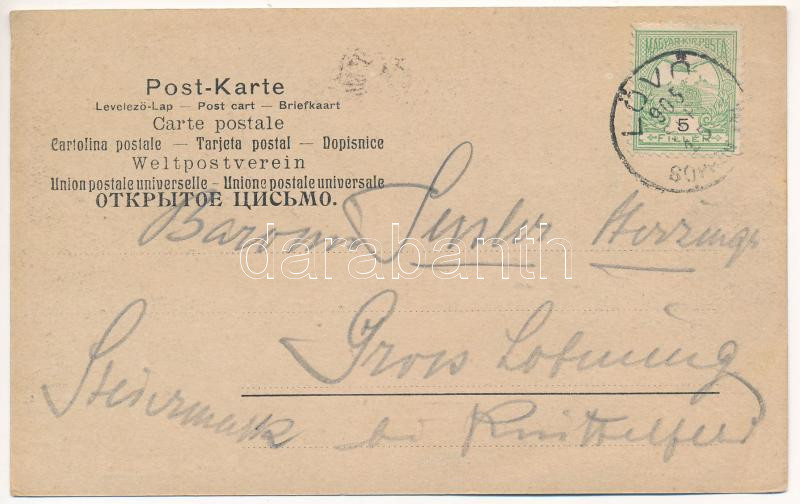 Post-Karte
Levelező-Lap — Post cart — Briefkaart
Carte postale
Cartolina postale — Tarjeta postal — Dopisnice
Weltpostverein
Union postale universelle - Unione postale universale
ОТКРЫТОЕ ЦИСЬМО.
MAGYAR KIR. POSTA
5
FILLÉR
LÖVŐ
905
darabanth
Gross Lobming
Steiermark bei Knittelfeld